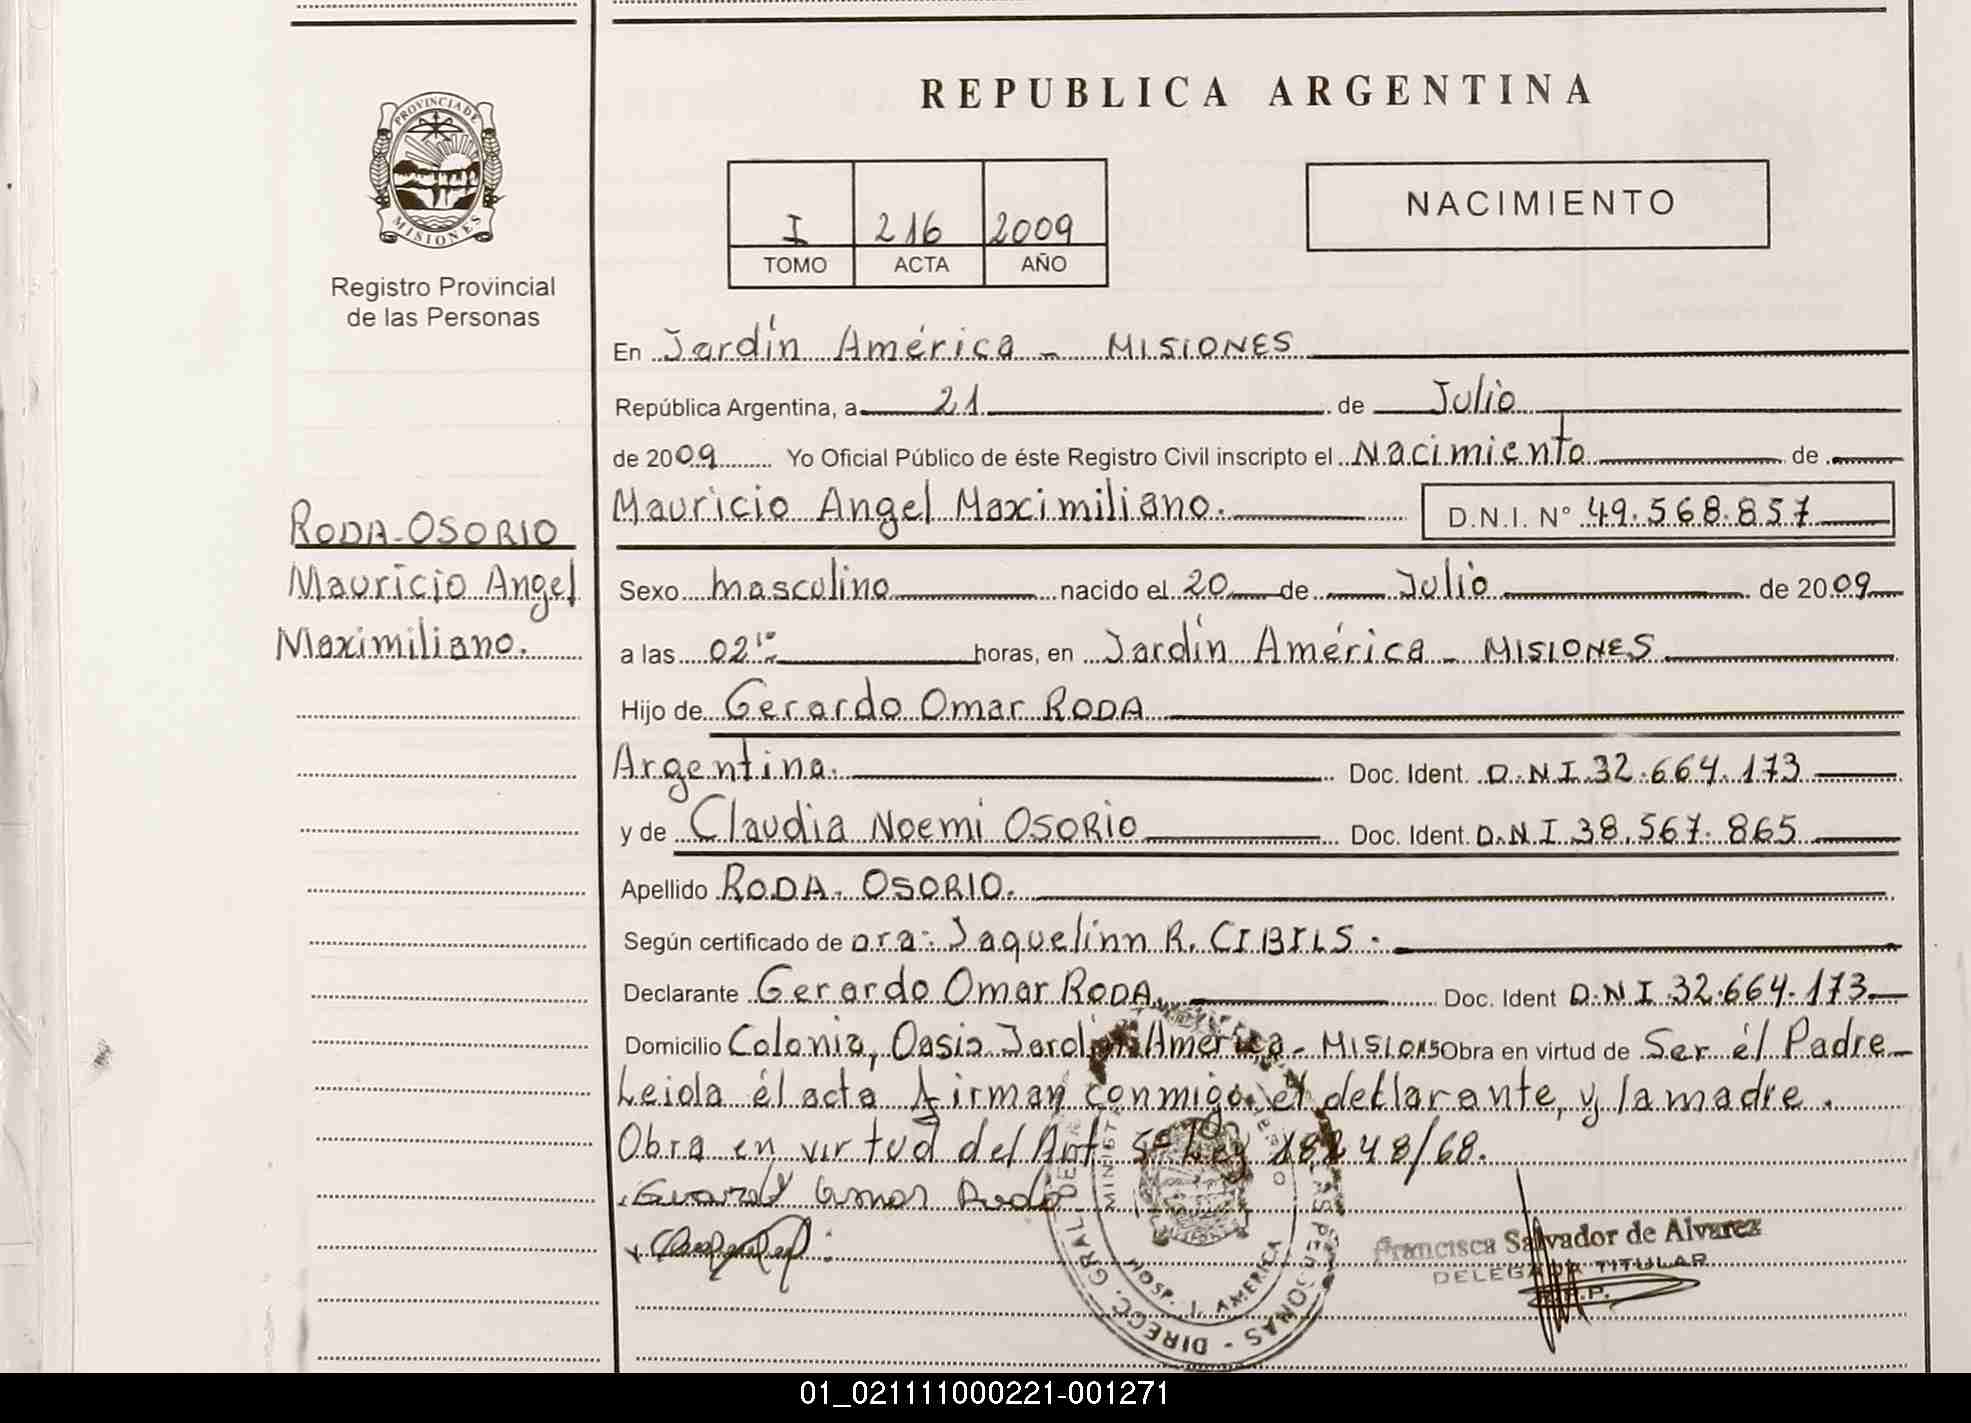 REPUBLICA ARGENTINA
PROVINCIA DE
MISIONES
Registro Provincial
de las Personas
I 216 2009
TOMO ACTA AÑO
NACIMIENTO
En Jardín América - MISIONES
República Argentina, a 21 de Julio
de 2009 Yo Oficial Público de éste Registro Civil inscripto el Nacimiento de
Mauricio Angel Maximiliano. D.N.I. N° 49.568.857
RODA-OSORIO
Mauricio Angel
Maximiliano.
Sexo masculino nacido el 20 de Julio de 2009
a las 02:10 horas, en Jardín América - MISIONES
Hijo de Gerardo Omar RODA
Argentina. Doc. Ident. D.N.I. 32.664.173
y de Claudia Noemi OSORIO Doc. Ident. D.N.I. 38.567.865
Apellido RODA-OSORIO.
Según certificado de Dra: Jaquelinn R. CIBILS.
Declarante Gerardo Omar RODA Doc. Ident D.N.I. 32.664.173
Domicilio Colonia, Oasis Jardín América - Obra en virtud de Ser él Padre
Leida él acta firman conmigo el declarante, y la madre.
Obra en virtud del Art 5º Ley 18248/68.
Omar Roda
Francisca Salvador de Alvarez
DELEGADA TITULAR
R.P.P.
DIRECC. GRAL. DE PERSONAS
HOSP. J. AMERICA
01_021111000221-001271